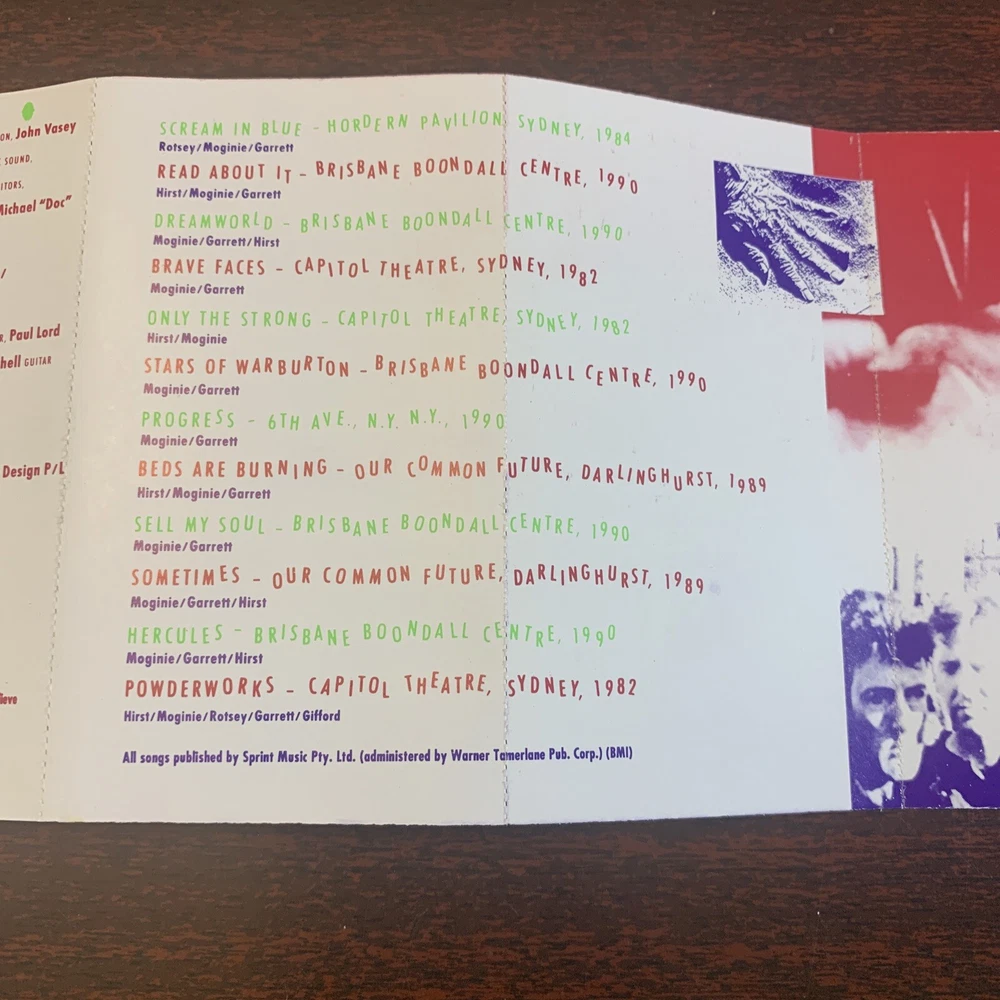 ON, John Vasey
SOUND,
ITORS,
Michael "Doc"
/
R, Paul Lord
hell GUITAR
Design P/L
ieve
SCREAM IN BLUE - HORDERN PAVILION, SYDNEY, 1984
Rotsey/Moginie/Garrett
READ ABOUT IT - BRISBANE BOONDALL CENTRE, 1990
Hirst/Moginie/Garrett
DREAMWORLD - BRISBANE BOONDALL CENTRE, 1990
Moginie/Garrett/Hirst
BRAVE FACES - CAPITOL THEATRE, SYDNEY, 1982
Moginie/Garrett
ONLY THE STRONG - CAPITOL THEATRE, SYDNEY, 1982
Hirst/Moginie
STARS OF WARBURTON - BRISBANE BOONDALL CENTRE, 1990
Moginie/Garrett
PROGRESS - 6TH AVE., N.Y. N.Y., 1990
Moginie/Garrett
BEDS ARE BURNING - OUR COMMON FUTURE, DARLINGHURST, 1989
Hirst/Moginie/Garrett
SELL MY SOUL - BRISBANE BOONDALL CENTRE, 1990
Moginie/Garrett
SOMETIMES - OUR COMMON FUTURE, DARLINGHURST, 1989
Moginie/Garrett/Hirst
HERCULES - BRISBANE BOONDALL CENTRE, 1990
Moginie/Garrett/Hirst
POWDERWORKS - CAPITOL THEATRE, SYDNEY, 1982
Hirst/Moginie/Rotsey/Garrett/Gifford
All songs published by Sprint Music Pty. Ltd. (administered by Warner Tamerlane Pub. Corp.) (BMI)